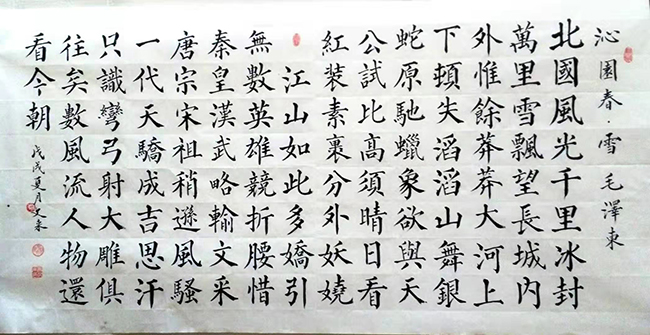 沁園春·雪 毛澤東
北國風光千里冰封
萬里雪飄望長城内
外惟餘莽莽大河上
下頓失滔滔山舞銀
蛇原馳蠟象欲與天
公試比高須晴日看
紅装素裹分外妖嬈
江山如此多嬌引
無數英雄競折腰惜
秦皇漢武略輸文采
唐宗宋祖稍遜風騷
一代天驕成吉思汗
只識彎弓射大雕俱
往矣數風流人物還
看今朝
戊戌夏月文